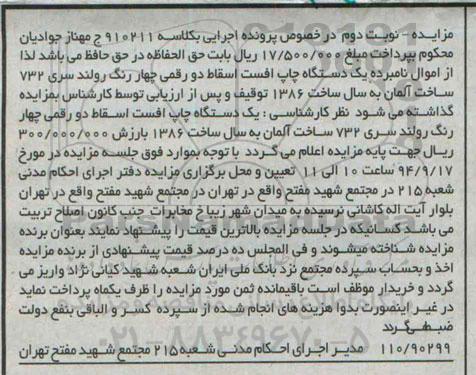 مزایده - نوبت دوم در خصوص پرونده اجرایی بکلاسه ۹۱۰۲۱۱ ج مهناز جوادیان
محکوم بپرداخت مبلغ ۱۷/۵۰۰/۰۰۰ ریال بابت حق الحفاظه در حق حافظ می باشد لذا
از اموال نامبرده یک دستگاه چاپ افست اسقاط دو رقمی چهار رنگ رولند سری ۷۳۲
ساخت آلمان به سال ساخت ۱۳۸۶ توقیف و پس از ارزیابی توسط کارشناس بمزایده
گذاشته می شود نظر کارشناسی : یک دستگاه چاپ افست اسقاط دو رقمی چهار
رنگ رولند سری ۷۳۲ ساخت آلمان به سال ساخت ۱۳۸۶ بارزش ۳۰۰/۰۰۰/۰۰۰
ریال جهت پایه مزایده اعلام می گردد با توجه بموارد فوق جلسه مزایده در مورخ
۹۴/۹/۱۷ ساعت ۱۰ الی ۱۱ تعیین و محل برگزاری مزایده دفتر اجرای احکام مدنی
شعبه ۲۱۵ در مجتمع شهید مفتح واقع در تهران در مجتمع شهید مفتح واقع در تهران
بلوار آیت اله کاشانی نرسیده به میدان شهر زیبا خ مخابرات جنب کانون اصلاح تربیت
می باشد کسانیکه در جلسه مزایده بالاترین قیمت را پیشنهاد نمایند بعنوان برنده
مزایده شناخته میشوند و فی المجلس ده درصد قیمت پیشنهادی از برنده مزایده
اخذ و بحساب سپرده مجتمع نزد بانک ملی ایران شعبه شهید کیانی نژاد واریز می
گردد و خریدار موظف است باقیمانده ثمن مورد مزایده را ظرف یکماه پرداخت نماید
در غیر اینصورت بدوا هزینه های انجام شده از سپرده کسر و الباقی بنفع دولت
ضبط می گردد
۱۱۰/۹۰۲۹۹ مدیر اجرای احکام مدنی شعبه ۲۱۵ مجتمع شهید مفتح تهران
۰۲۱-۸۸۳۴۹۶۷۰-۵